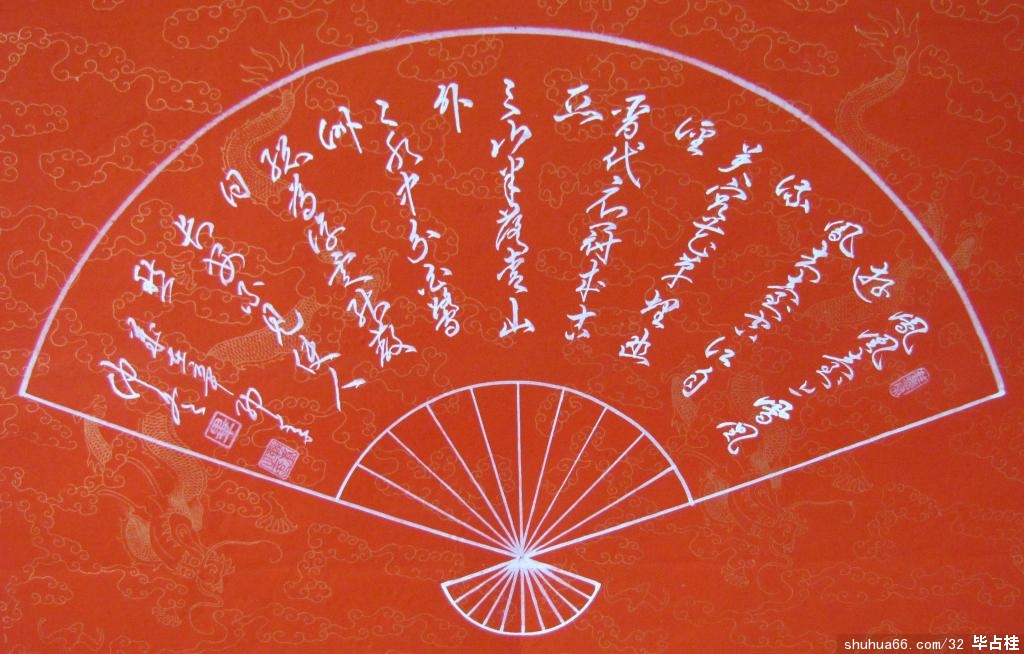 鳳凰臺上鳳凰
遊
鳳去臺空江自
流
吴宫花草埋幽
徑
晋代衣冠成古
丘
三山半落青山
外
二水中分白鹭
洲
總為浮雲能蔽
日
長安不見使人
愁
shuhua66.com/32 毕占桂